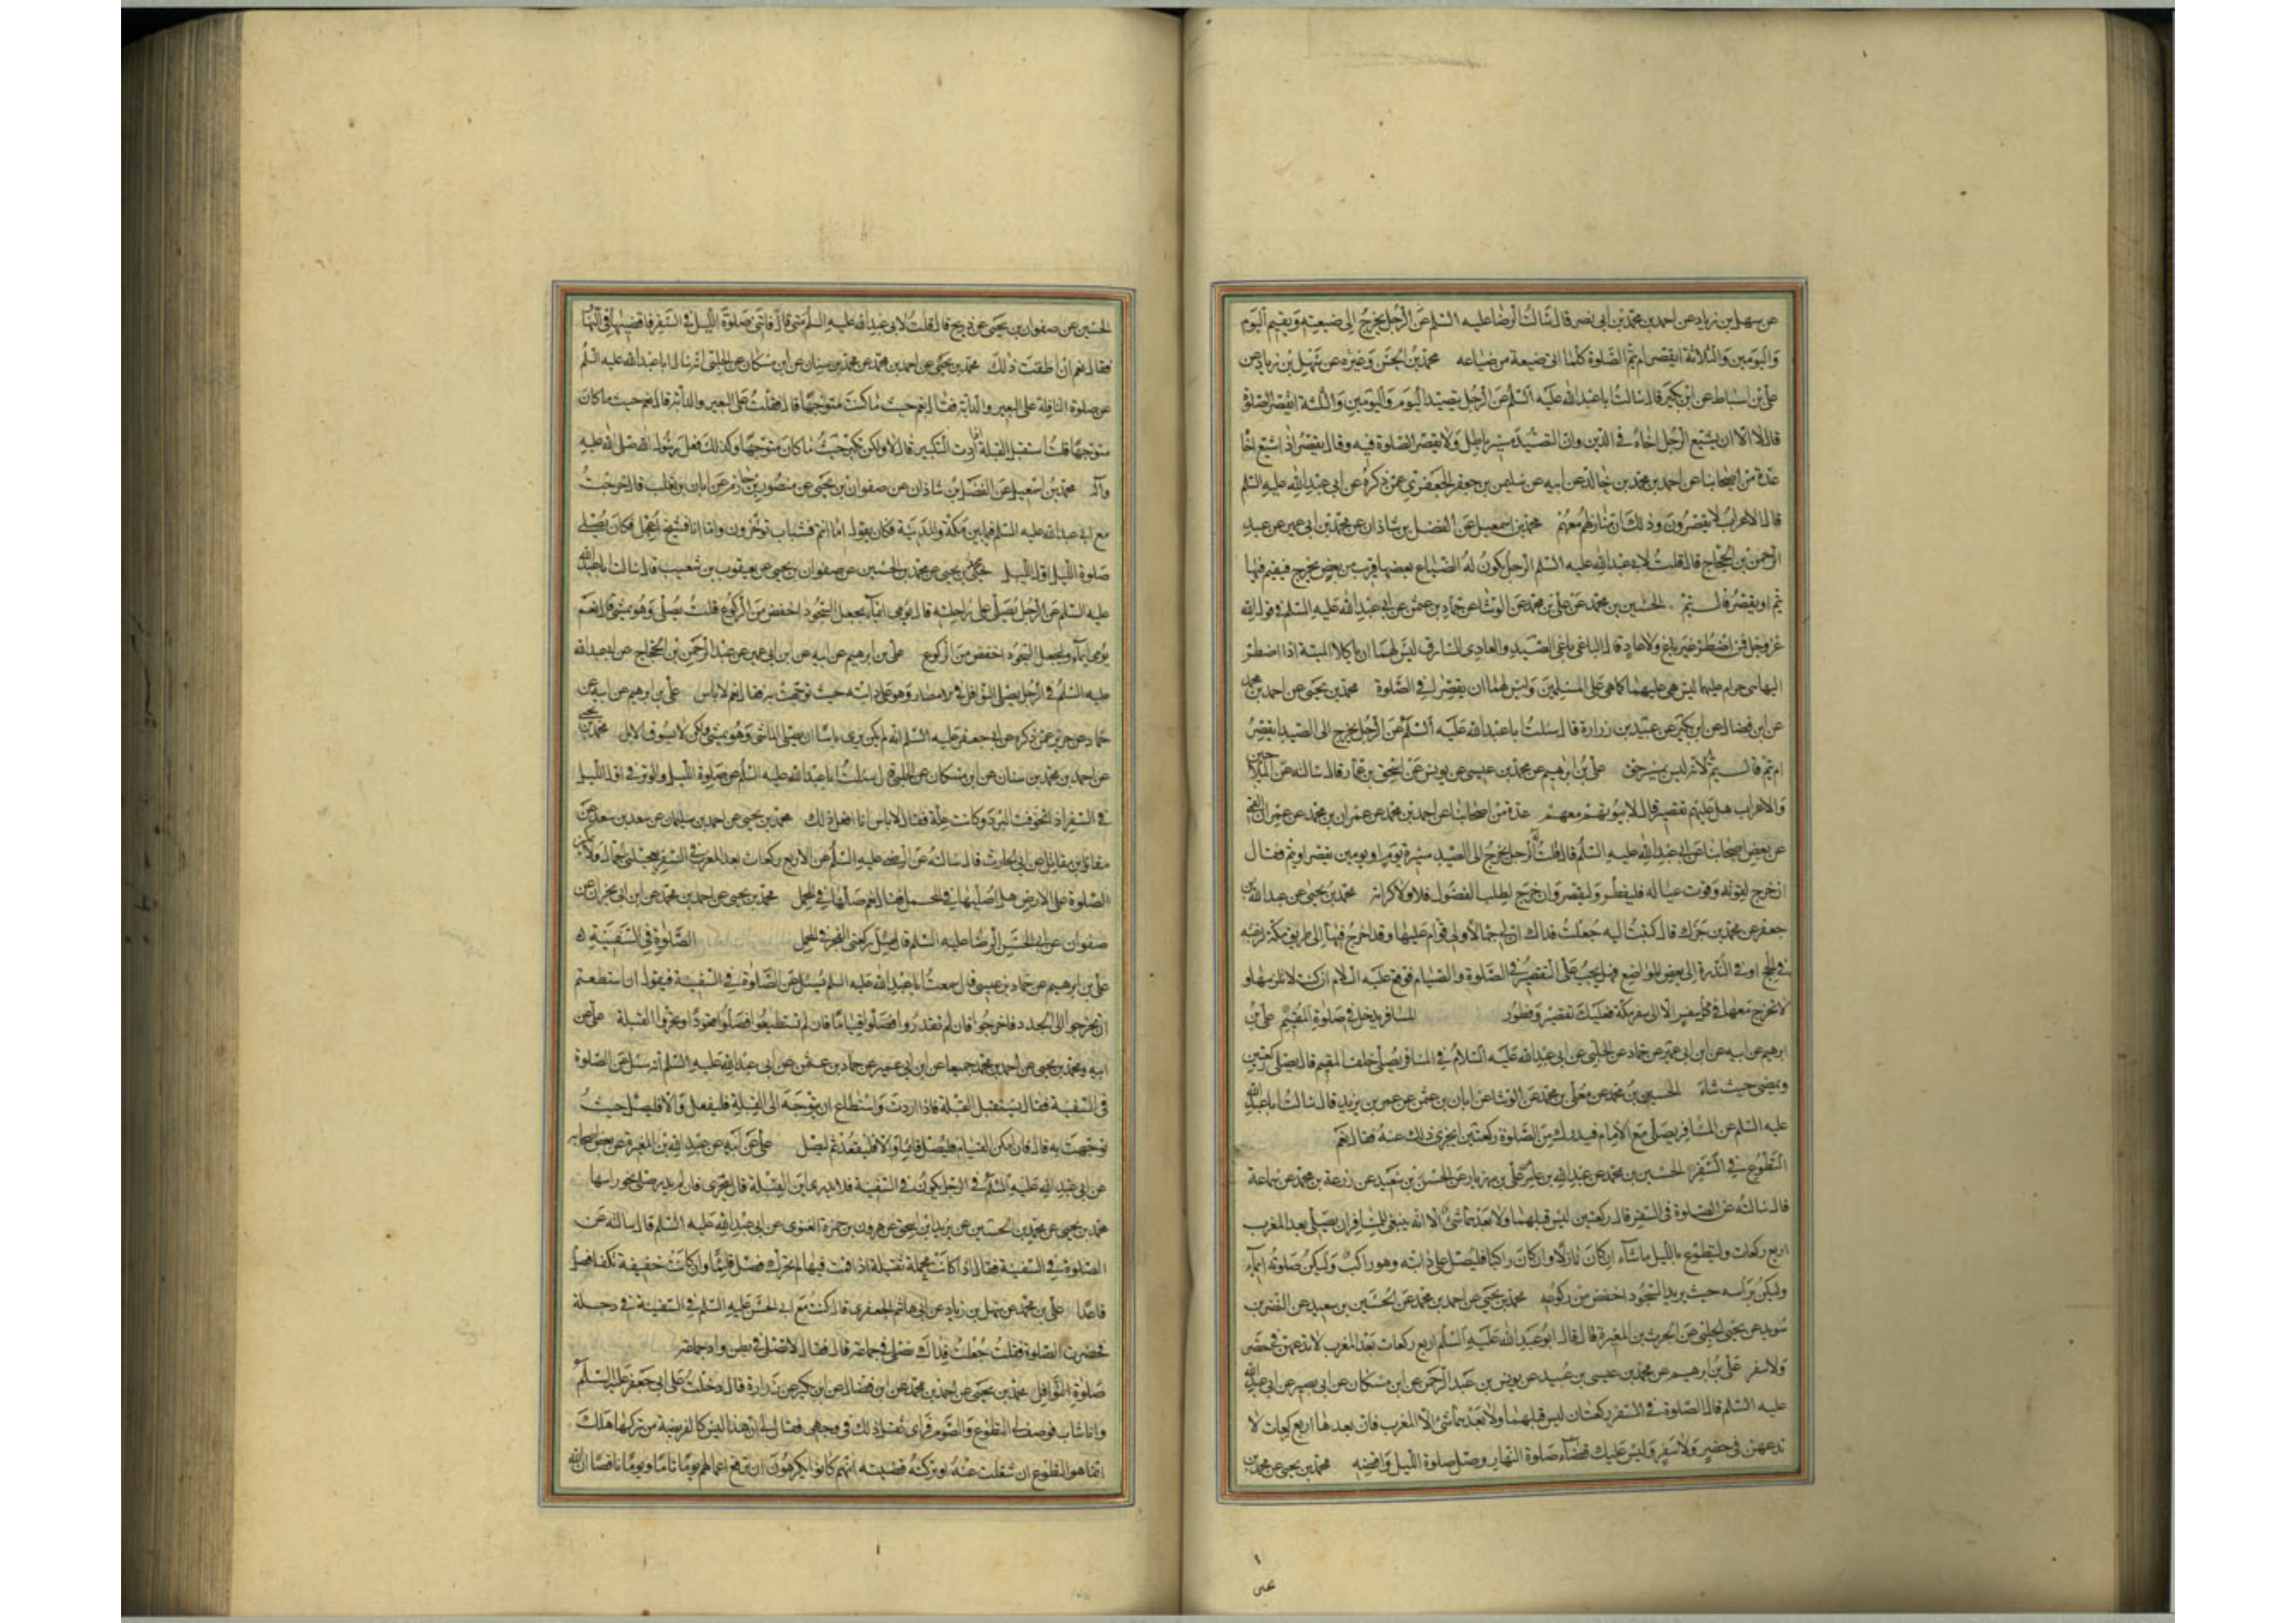 عن سهل بن زياد عن احمد بن محمد بن ابى نصر قال سالت الرضا عليه السلم عن الرجل يخرج الى ضيعته ويقيم اليوم
واليومين والثلاثة ايقصر ام يتم الصلوة كلما اتى ضيعة من ضياعه محمد بن الحسن وغيره عن سهل بن زياد عن
على بن اسباط عن ابن بكير قال سالت ابا عبد الله عليه السلم عن الرجل يتصيد اليوم واليومين والثلثة ايقصر الصلوة
قال لا الا ان يشيع الرجل اخاه فى الدين وان التصيد مسير باطل ولا يقصر الصلوة فيه وقال يقصر اذا شيع اخاه
عدة من اصحابنا عن احمد بن محمد بن خالد عن ابيه عن سليمن بن جعفر الجعفرى عمن ذكره عن ابى عبد الله عليه السلم
قال الاعراب لا يقصرون وذلك ان منازلهم معهم محمد بن اسمعيل عن الفضل بن شاذان عن محمد بن ابى عمير عن عبد
الرحمن بن الحجاج قال قلت لابى عبد الله عليه السلم الرجل يكون له الضياع بعضها قريب من بعض يخرج فيقيم فيها
يتم او يقصر قال يتم الحسين بن محمد عن على بن محمد عن الوشا عن حماد بن عثمن عن ابى عبد الله عليه السلم فى قول الله
عز وجل فمن اضطر غير باغ ولا عاد قال الباغى باغى الصيد والعادى السارق ليس لهما ان ياكلا الميتة اذا اضطر
اليها هى حرام عليهما ليس هى عليهما كما هى على المسلمين وليس لهما ان يقصرا فى الصلوة محمد بن يحيى عن احمد بن محمد
عن ابن فضال عن ابن بكير عن عبيد بن زرارة قال سئلت ابا عبد الله عليه السلم عن الرجل يخرج الى الصيد ايقصر
ام يتم قال يتم لانه ليس بمسير حق على بن ابراهيم عن محمد بن عيسى عن يونس عن اسحق بن عمار قال سالته عن الملاحين
والاعراب هل عليهم تقصير قال لا بيوتهم معهم عدة من اصحابنا عن احمد بن محمد عن عمران بن محمد عن عمران القمى
عن بعض اصحابنا عن ابى عبد الله عليه السلم قال قلت له الرجل يخرج الى الصيد مسيرة يوم او يومين يقصر او يتم فقال
ان خرج لقوته وقوت عياله فليفطر وليقصر وان خرج لطلب الفضول فلا ولا كرامة محمد بن يحيى عن عبد الله بن
جعفر عن محمد بن جزك قال كتبت اليه جعلت فداك ان لى جمالا ولى قوام عليها وقد اخرج فيها الى طريق مكة لرغبة
فى الحج او فى الندرة الى بعض المواضع فهل يجب على التقصير فى الصلوة والصيام فوقع عليه السلام ان كنت لا تلزمها و
لا تخرج معها فى كل سفر الا الى سفر مكة فعليك تقصير وفطور المسافر يدخل فى صلوة المقيم على بن
ابرهيم عن ابيه عن ابن ابى عمير عن حماد عن الحلبى عن ابى عبد الله عليه السلام فى المسافر يصلى خلف المقيم قال يصلى ركعتين
ويمضى حيث شاء الحسين بن محمد عن معلى بن محمد عن الوشا عن ابان بن عثمن عن عمر بن يزيد قال سالت ابا عبد الله
عليه السلم عن المسافر يصلى مع الامام فيدرك من الصلوة ركعتين ايجزى ذلك عنه فقال نعم
التطوع فى السفر الحسين بن محمد عن عبد الله بن عامر عن على بن مهزيار عن الحسن بن سعيد عن زرعة بن محمد عن سماعة
قال سالته عن الصلوة فى السفر قال ركعتين ليس قبلهما ولا بعدهما شئ الا انه ينبغى للمسافر ان يصلى بعد المغرب
اربع ركعات وليتطوع بالليل ما شاء ان كان نازلا وان كان راكبا فليصل على دابته وهو راكب وليكن صلوته ايماء
وليكن براسه حيث يريد السجود اخفض من ركوعه محمد بن يحيى عن احمد بن محمد عن الحسين بن سعيد عن النضر بن
سويد عن يحيى الحلبى عن الحرث بن المغيرة قال قال ابو عبد الله عليه السلم اربع ركعات بعد المغرب لا تدعهن فى حضر
ولا سفر على بن ابرهيم عن محمد بن عيسى بن عبيد عن يونس بن عبد الرحمن عن ابن مسكان عن ابى بصير عن ابى عبد الله
عليه السلم قال الصلوة فى السفر ركعتان ليس قبلهما ولا بعدهما شئ الا المغرب فان بعدها اربع ركعات لا
تدعهن فى حضر ولا سفر وليس عليك قضاء صلوة النهار وصل صلوة الليل واقضه محمد بن يحيى عن محمد بن
الحسين عن صفوان بن يحيى عن ذريح قال قلت لابى عبد الله عليه السلم فاتتنى صلوة الليل فى السفر فاقضيها فى النهار
فقال نعم ان اطقت ذلك محمد بن يحيى عن احمد بن محمد عن محمد بن سنان عن ابن مسكان عن الحلبى انه سال ابا عبد الله عليه السلم
عن صلوة النافلة على البعير والدابة فقال نعم حيث ما كنت متوجها قال فقلت على البعير والدابة قال نعم حيث ما كان
متوجها قلت استقبل القبلة اذا اردت التكبير قال لا ولكن تكبر حيث ما كان متوجها وكذلك فعل رسول الله صلى الله عليه
وآله محمد بن اسمعيل عن الفضل بن شاذان عن صفوان بن يحيى عن منصور بن حازم عن ابان بن تغلب قال خرجت
مع ابى عبد الله عليه السلم فيما بين مكة والمدينة فكان يقول اما انتم فشباب تؤخرون واما انا فشيخ اعجل فكان يصلى
صلوة الليل اول الليل محمد بن يحيى عن محمد بن الحسين عن صفوان بن يحيى عن يعقوب بن شعيب قال سالت ابا عبد الله
عليه السلم عن الرجل يصلى على راحلته قال يومى ايماء يجعل السجود اخفض من الركوع قلت يصلى وهو يمشى قال نعم
يومى ايماء وليجعل السجود اخفض من الركوع على بن ابرهيم عن ابيه عن ابن ابى عمير عن عبد الرحمن بن الحجاج عن ابى عبد الله
عليه السلم فى الرجل يصلى النوافل فى الامصار وهو على دابته حيث توجهت به فقال نعم لا باس على بن ابرهيم عن ابيه عن
حماد عن حريز عمن ذكره عن ابى جعفر عليه السلم انه لم يكن يرى باسا ان يصلى الماشى وهو يمشى ولكن لا يسوق الابل محمد بن يحيى
عن احمد بن محمد بن سنان عن ابن مسكان عن الحلبى قال سئلت ابا عبد الله عليه السلم عن صلوة الليل والوتر فى اول الليل
فى السفر اذا تخوفت البرد وكانت علة فقال لا باس انا افعل ذلك محمد بن يحيى عن احمد بن سليمان عن سعد بن سعد عن
مقاتل بن مقاتل عن ابى الحارث قال سالته عن الرضا عليه السلم عن الاربع ركعات بعد المغرب فى السفر يعجلنى الجمال ولا يمكننى
الصلوة على الارض هل اصليها فى المحمل فقال نعم صلها فى المحمل محمد بن يحيى عن احمد بن محمد عن ابن ابى نجران عن
صفوان عن ابى الحسن الرضا عليه السلم قال صل ركعتى الفجر فى المحمل الصلوة فى السفينة
على بن ابرهيم عن حماد بن عيسى قال سمعت ابا عبد الله عليه السلم يسئل عن الصلوة فى السفينة فيقول ان استطعتم
ان تخرجوا الى الجدد فاخرجوا فان لم تقدروا فصلوا قياما فان لم تستطيعوا فصلوا قعودا وتحروا القبلة على عن
ابيه ومحمد بن يحيى عن احمد بن محمد جميعا عن ابن ابى عمير عن حماد بن عثمن عن ابى عبد الله عليه السلم انه سئل عن الصلوة
فى السفينة فقال يستقبل القبلة فاذا اردت واستطاع ان يتوجه الى القبلة فليفعل والا فليصل حيث
توجهت به قال فان امكن القيام فليصل قائما والا فليقعد ثم ليصل على عن ابيه عن عبد الله بن المغيرة عن بعض اصحابه
عن ابى عبد الله عليه السلم فى الرجل يكون فى السفينة فلا يدرى اين القبلة قال يتحرى فان لم يدر صلى نحو راسها
محمد بن يحيى عن محمد بن الحسين عن يزيد بن اسحق عن هرون بن حمزة الغنوى عن ابى عبد الله عليه السلم قال سالته عن
الصلوة فى السفينة فقال اذا كانت محملة ثقيلة اذا قمت فيها لم تحرك فصل قائما وان كانت خفيفة تكفا فصل
قاعدا على بن محمد عن سهل بن زياد عن ابى هاشم الجعفرى قال كنت مع ابى الحسن عليه السلم فى السفينة فى دجلة
فحضرت الصلوة فقلت جعلت فداك نصلى فى جماعة قال فقال لا تصل فى بطن واد جماعة
صلوة النوافل محمد بن يحيى عن احمد بن محمد عن ابن فضال عن ابن بكير عن زرارة قال دخلت على ابى جعفر عليه السلم
وانا شاب فوصف لى التطوع والصوم فراى ثقل ذلك فى وجهى فقال لى ان هذا ليس كالفريضة من تركها هلك
انما هو التطوع ان شغلت عنه او تركته قضيته انهم كانوا يكرهون ان ترفع اعمالهم يوما تاما ويوما ناقصا ان الله